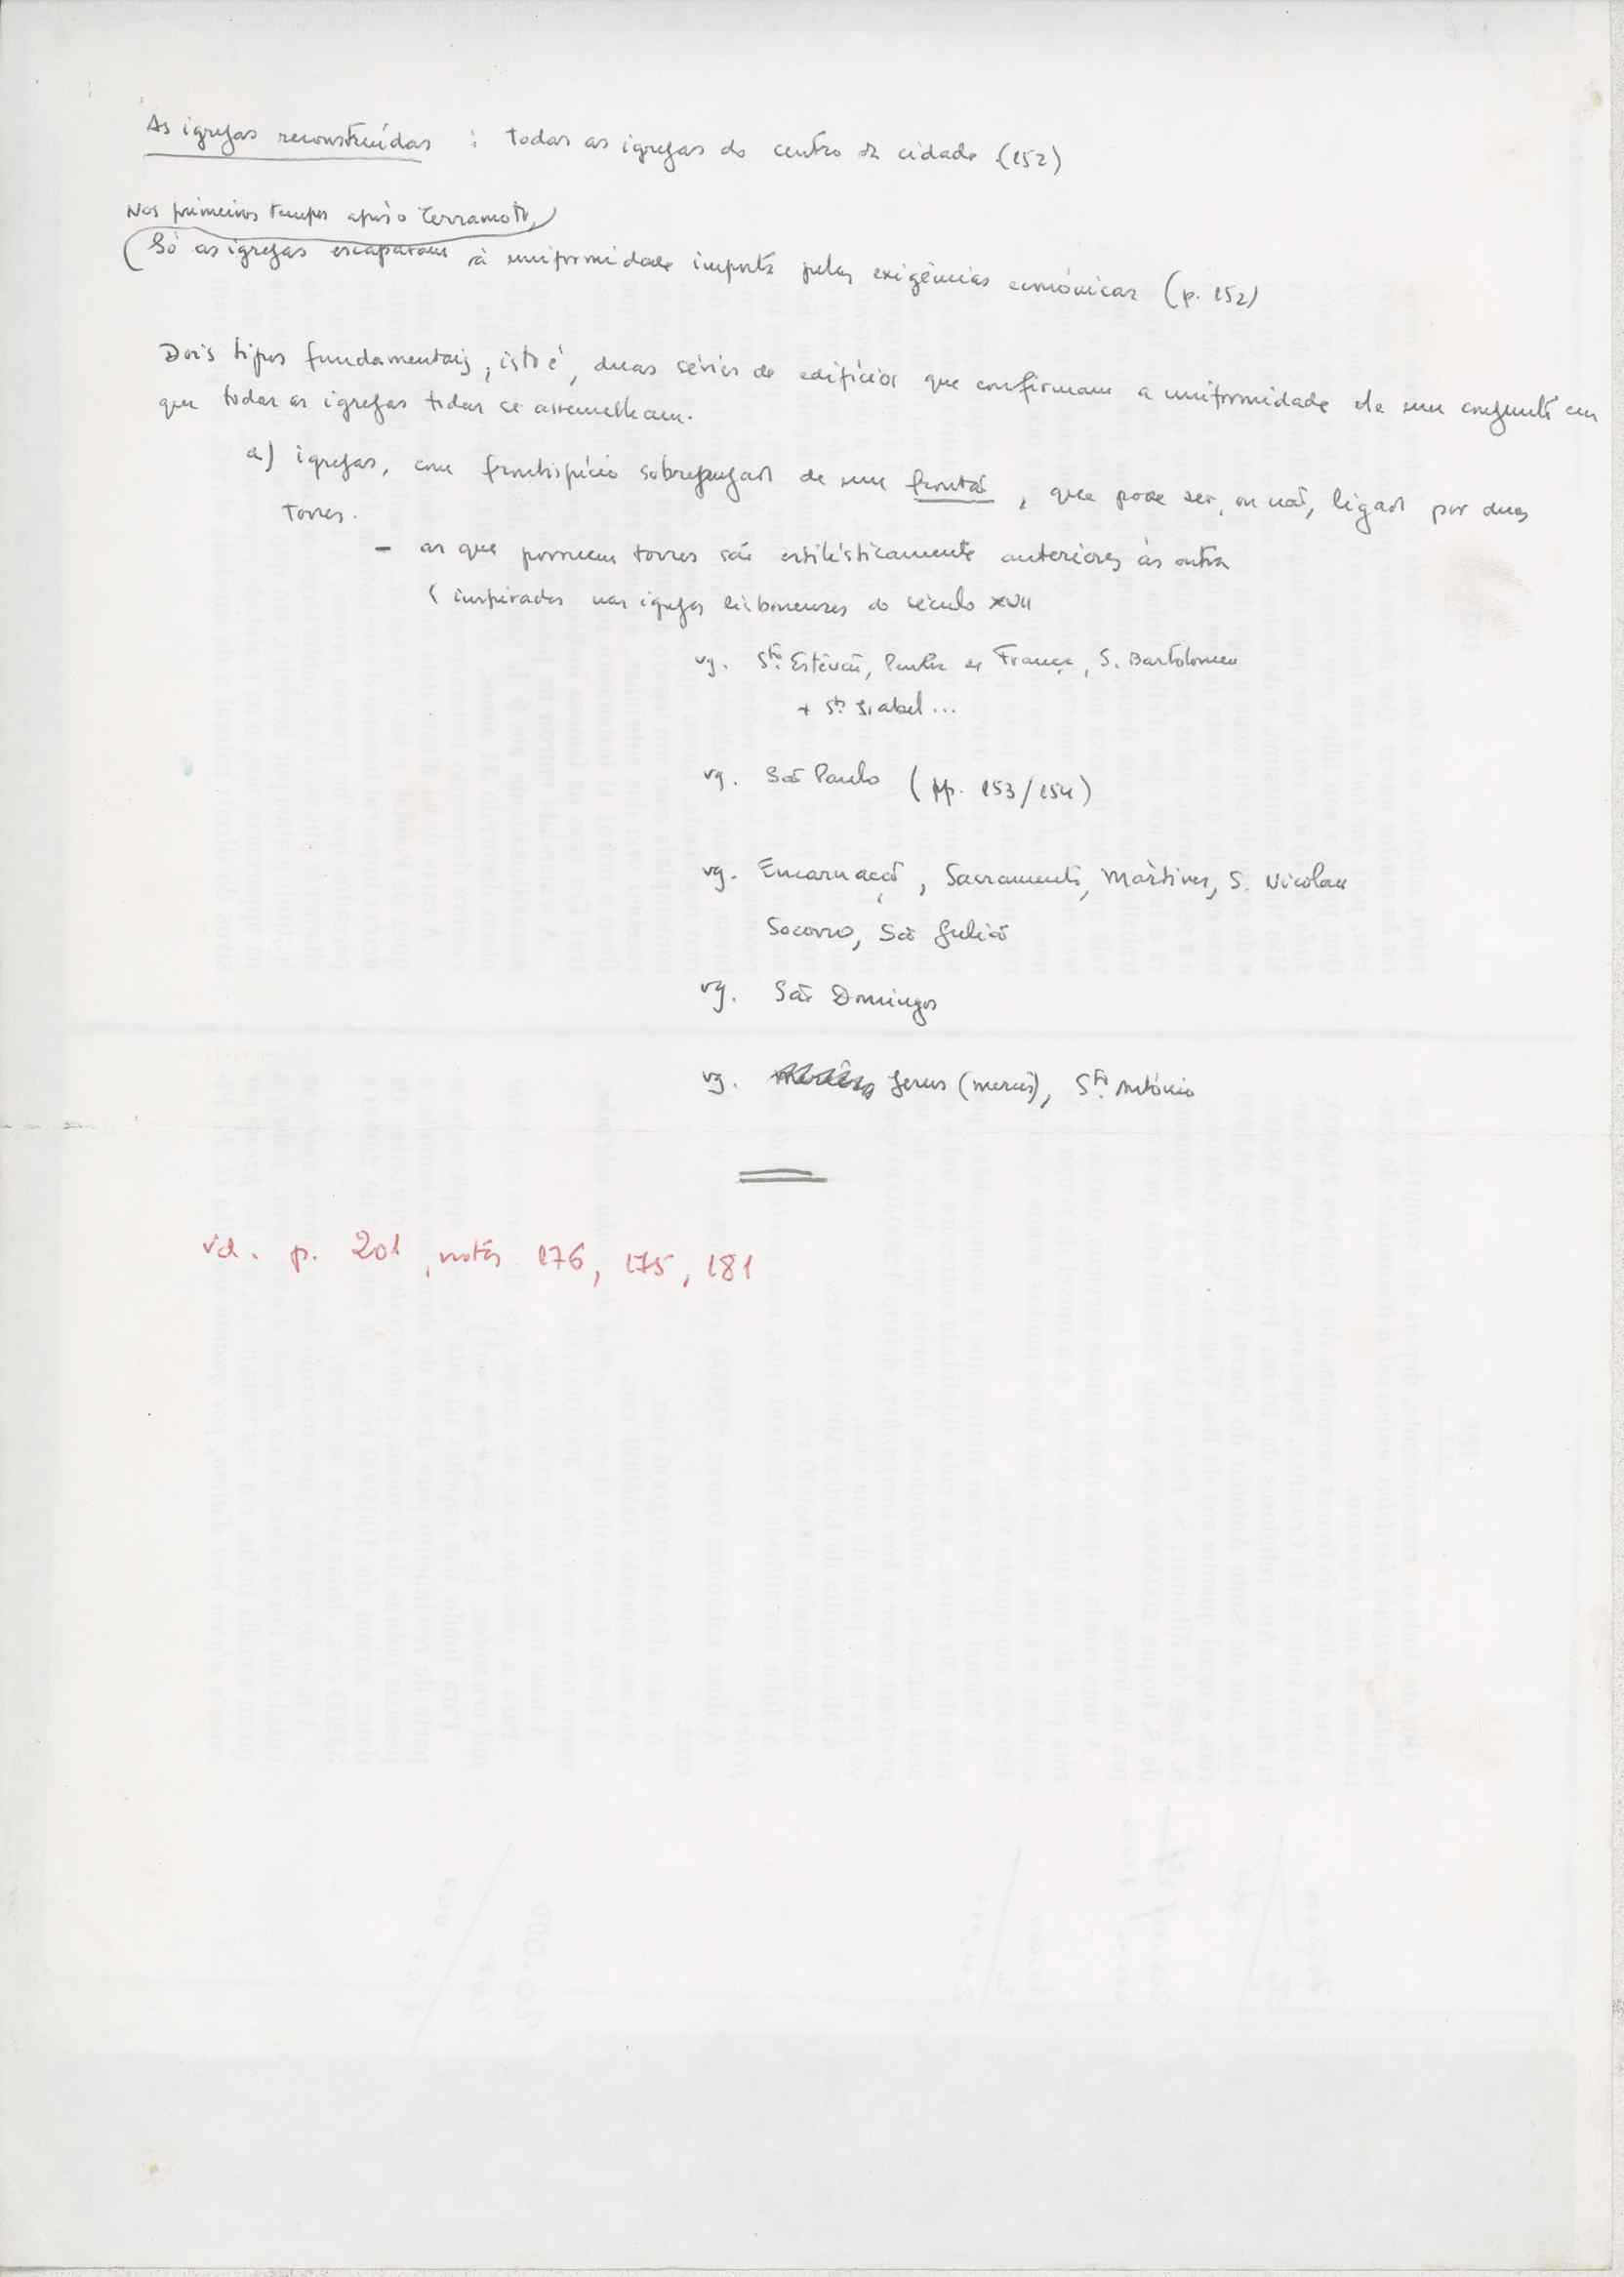 As igrejas reconstruídas : todas as igrejas do centro da cidade (152)
Nos primeiros tempos após o Terramoto,
Só as igrejas escaparam à uniformidade imposta pelas exigências económicas (p. 152)
Dois tipos fundamentais, isto é, duas séries de edifícios que confirmam a uniformidade de um conjunto em
que todas as igrejas todas se assemelham.
a) igrejas, com frontispício sobrepujado de um frontão, que pode ser, ou não, ligado por duas
torres.
- as que possuem torres são estilisticamente anteriores às outras
( inspiradas nas igrejas lisboneuses do século XVII
vg. Sto. Estêvão, Penha de França, S. Bartolomeu
+ Sta. Isabel ...
vg. São Paulo (pp. 153/154)
vg. Encarnação, Sacramento, Mártires, S. Nicolau
Socorro, São Julião
vg. São Domingos
vg. Jesus (mercês), Sto. António
vd. p. 201, notas 176, 175, 181